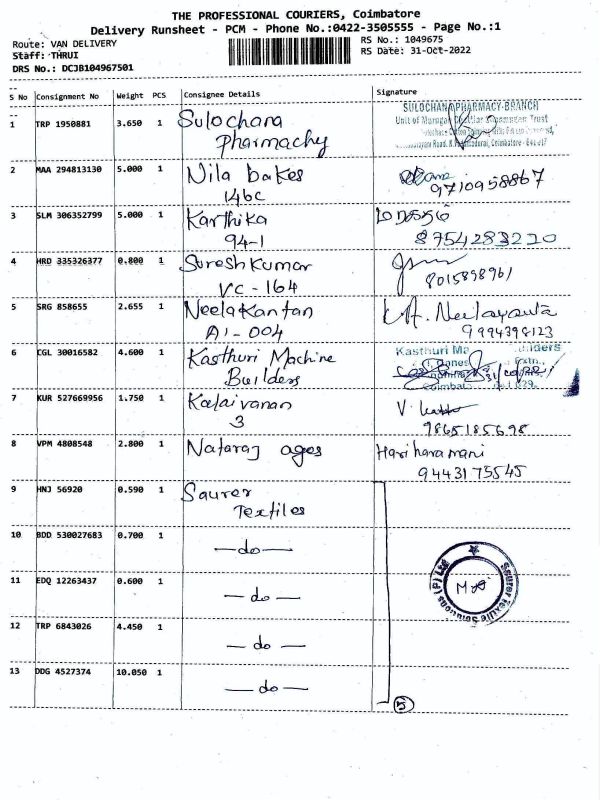 THE PROFESSIONAL COURIERS, Coimbatore
Delivery Runsheet - PCM - Phone No.:0422-3505555 - Page No.:1
Route: VAN DELIVERY RS No.: 1049675
Staff: THRUI RS Date: 31-Oct-2022
DRS No.: DCJB104967501
S No Consignment No Weight PCS Consignee Details Signature
1 TRP 1950881 3.650 1 Sulochana
Pharmachy
SULOCHANA PHARMACY-BRANCH
2 MAA 294813130 5.000 1 Nila bakes
146c
9710958867
3 SLM 306352799 5.000 1 Karthika
94-1
8754283220
4 HRD 335326377 0.800 1 Suresh Kumar
VC - 164
8015898961
5 SRG 858655 2.655 1 Neela Kantan
A1-004
9994398123
6 CGL 30016582 4.600 1 Kasthuri Machine
Builders
Kasthuri Ma
7 KUR 527669956 1.750 1 Kalaivanan
3
9865185698
8 VPM 4808548 2.800 1 Nataraj ages Hariharamani
9443175545
9 HNJ 56920 0.590 1 Saurer
Textiles
10 BDD 530027683 0.700 1 — do —
11 EDQ 12263437 0.600 1 — do —
Saurer Textile Solutions (P) Ltd
12 TRP 6843026 4.450 1 — do —
13 DDG 4527374 10.050 1 — do —
5